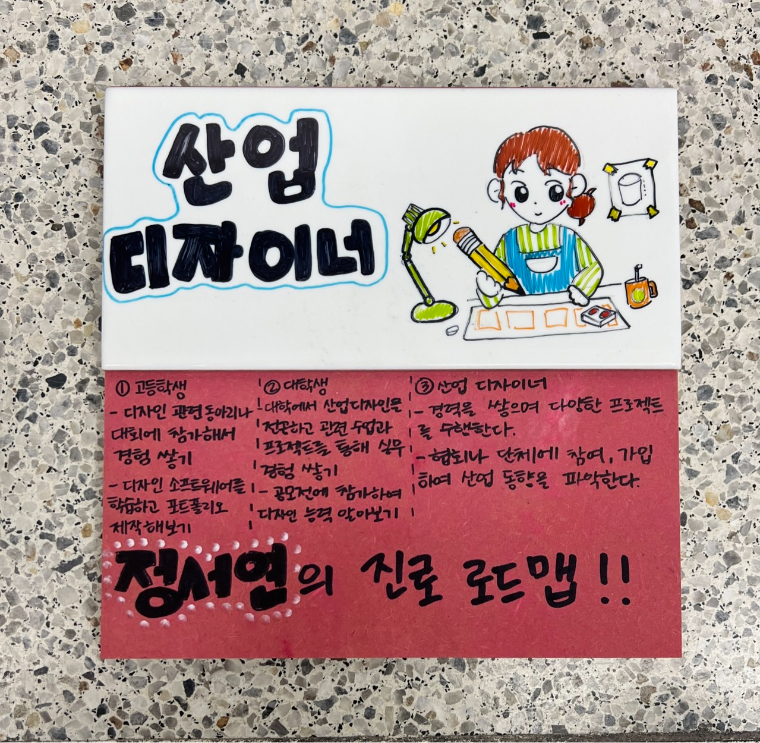 산업
디자이너
① 고등학생
- 디자인 관련 동아리나
대회에 참가해서
경험 쌓기
- 디자인 소프트웨어를
학습하고 포트폴리오
제작해보기
② 대학생
대학에서 산업디자인을
전공하고 관련 수업과
프로젝트를 통해 실무
경험 쌓기
- 공모전에 참가하여
디자인 능력 알아보기
③ 산업 디자이너
- 경력을 쌓으며 다양한 프로젝트
를 수행한다.
- 협회나 단체에 참여, 가입
하여 산업 동향을 파악한다.
정서연의 진로 로드맵 !!